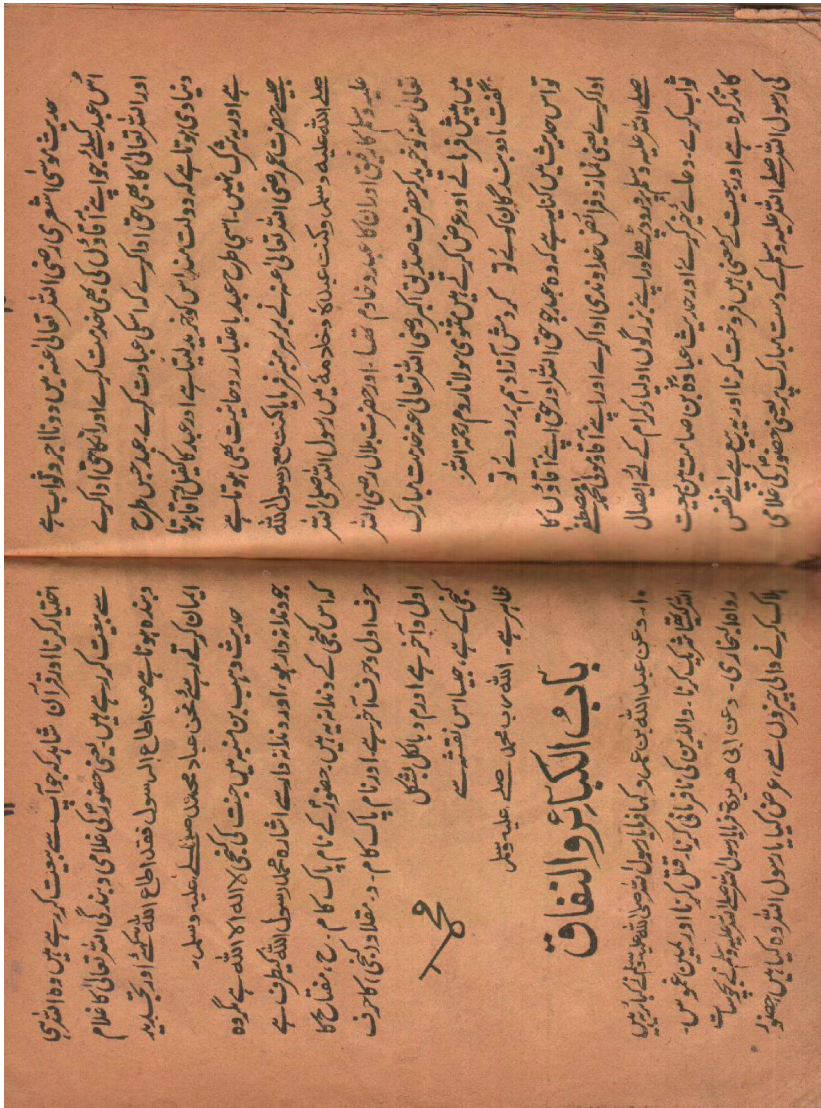 حدیث موسیٰ اشعری رضی اللہ تعالیٰ عنہ میں دونا اجر و ثواب ہے
اُس عبد کیلئے جو اپنے آقاؤں کی بھی خدمت کرے اور انکا حق ادا کرے
اور اللہ تعالیٰ کا بھی حق ادا کرے کہ اسکی عبادت کرے عبد جس طرح
دنیادی ہوتا ہے کہ دولت مند اس کو خرید لیتا ہے اور عبد کا کفیل آقا ہوتا
ہے اور یہ شرک نہیں۔ اسی طرح عبد باعتبار روحانیت بھی ہوتا ہے
جیسے حضرت عمر رضی اللہ تعالیٰ عنہ نے برسر منبر فرمایا کنت مع رسول اللہ
صلے اللہ علیہ وسلم وکنت عبدہ وخادمہ میں رسول اللہ صلی اللہ
علیہ وسلم کا رفیق اور ان کا عبد و خادم تھا۔ اور حضرت بلال رضی اللہ
تعالیٰ عنہ کو خرید کر حضرت صدیق اکبر رضی اللہ تعالیٰ عنہ خدمت مبارک
میں پیش فرماتے اور عرض کرتے ہیں مثنوی مولانا روم رحمۃ اللہ
گفت ما دو بندگان کوئے تو کردمش آزاد ہم بر روئے تو
تو اس حدیث میں کنایہ ہے کہ وہ عبد جو حق اللہ اور حق اپنے آقاؤں کا
ادا کرے یعنی نماز و فرائض خداوندی ادا کرے اور اپنے آقا و مولیٰ محمد مصطفےٰ
صلے اللہ علیہ وسلم پر درود پڑھے اور اپنے بزرگوں اولیاء کرام کے لئے ایصال
ثواب کرے۔ دعائے خیر کرے اور حدیث عبادہ بن صامت میں بیعت
کا تذکرہ ہے اور بیعت کے معنی ہیں فروخت کرنا اور یہ بیع ہے اپنے نفس
کی رسول اللہ صلے اللہ علیہ وسلم کے دست مبارک پر یعنی حضور کی غلامی
اختیار کرنا اور قرآن شاہد کہ جو آپ سے بیعت کر رہے ہیں وہ اللہ ہی
سے بیعت کر رہے ہیں۔ یعنی حضور کی غلامی و بندگی اللہ تعالیٰ کا غلام
و بندہ ہونا ہے من اطاع الرسول فقد اطاع اللہ اور تجدید
ایمان کرتے رہئے نحن عباد محمد صلے علیہ وسلم۔
حدیث وہب بن منبہ میں جنت کی کنجی لا الہ الا اللہ ہے مگر وہ
جو دندانہ دار ہو، اور دندانہ دار سے اشارہ محمد رسول اللہ کیطرف ہے
کہ اس کنجی کے دندانہ یہ ہیں، حضور کے نام پاک کا م۔ ح، مفتاح کا
حرف اول و حرف آخر ہے۔ اور نام پاک کا م۔ د۔ مقلاد (کنجی) کا حرف
اول و آخر ہے اور م د بالکل بشکل
کنجی کے ہے، جیسا اس نقشہ سے
ظاہر ہے۔ اللہ رب محمد صلے علیہ وسلم
محمد
باب الکبائر والنفاق
(۱)۔ وعن عبد اللہ بن عمرو کہا فرمایا رسول اللہ صلی اللہ علیہ وسلم نے کبائر یہ ہیں
اللہ کیساتھ شریک کرنا۔ والدین کی نافرمانی کرنا۔ قتل کرنا اور یمین غموس۔
رواہ البخاری۔ وعن ابی ہریرۃ فرمایا رسول اللہ صلے اللہ علیہ وسلم نے بچو سات
ہلاک کرنے والی چیزوں سے، عرض کیا یا رسول اللہ وہ کیا ہیں، حضور